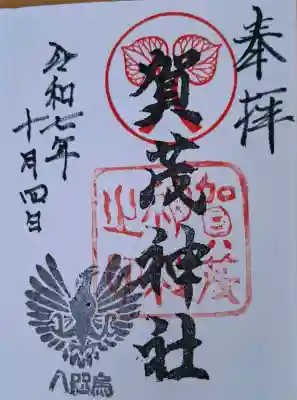 奉拝
賀茂神社
令和七年
十月四日
八咫烏